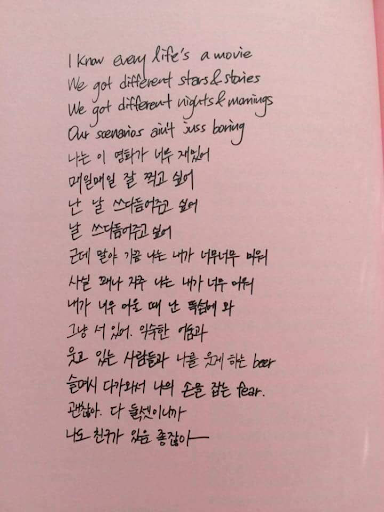 I know every life's a movie
We got different stars & stories
We got different nights & mornings
Our scenarios ain't juss boring
나는 이 영화가 너무 재밌어
매일매일 잘 찍고 싶어
난 날 쓰다듬어주고 싶어
날 쓰다듬어주고 싶어
근데 말야 가끔 나는 내가 너무너무 미워
사실 꽤나 자주 나는 내가 너무 미워
내가 너무 미울 때 난 뚝섬에 와
그냥 서 있어, 익숙한 어둠과
웃고 있는 사람들과 나를 웃게 하는 beer
슬며시 다가와서 나의 손을 잡는 fear.
괜찮아. 다 둘셋이니까
나도 친구가 있음 좋잖아—